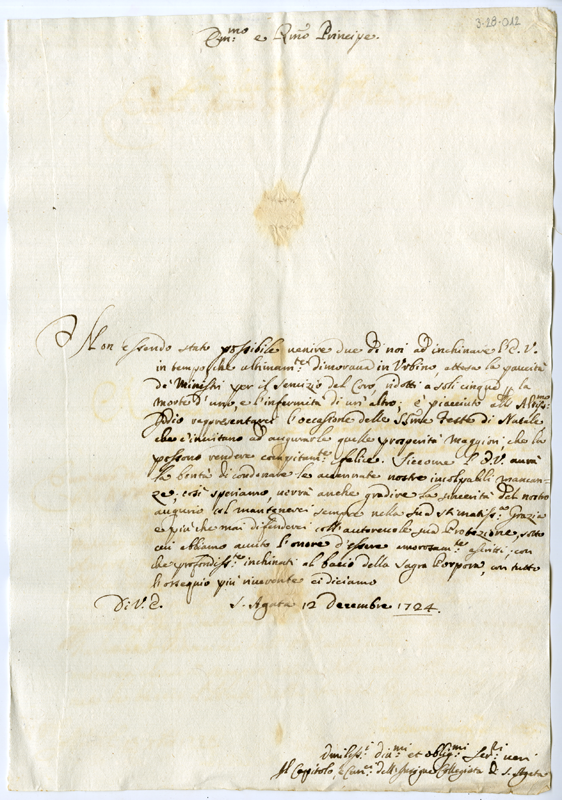 3-28-012
Em:mo e Rmo Principe.
Non essendo stato possibile venire due di noi ad inchinare l'E. V.
in tempo che ultimam:te dimorava in Urbino, attesa la paucità
de' Ministri per il Servizio del Coro, ridotti a soli cinque p la
morte d'uno, e l'infermità di un'altro; è piaciuto all'Altiss:mo
Iddio rapresentarci l'occasione delle SSme Feste di Natale
che c'invitano ad augurarle quelle prosperità maggiori che la
possono rendere felice. Siccome l'E. V. avrà
la bontà di condonare le accennate nostre incolpabili mancan-
ze, così speriamo, vorrà anche gradire la sincerità del nostro
augurio col mantenerci sempre nella sua stimatiss:a Grazia
e più che mai difenderci coll'autorevole sua Protezione, sotto
cui abbiamo avuto l'onore d'essere amorosam:te ascritti; con
che profondiss:te inchinati al bacio della Sagra Porpora, con tutto
l'ossequio più riverente ci diciamo
Di V. E. S. Agata 12 Decembre 1724.
Umiliss:i di:mi et oblig:mi Ser:ri veri
Il Capitolo, e Can:ci dell'Insigne Collegiata di S. Agata